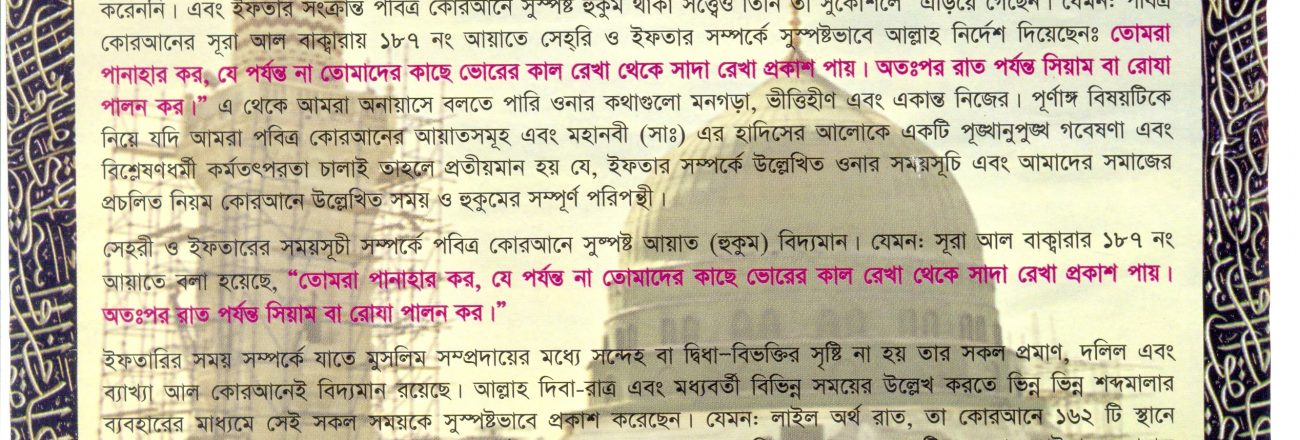 করেননি। এবং ইফতার সংক্রান্ত পবিত্র কোরআনে সুস্পষ্ট হুকুম থাকা সত্ত্বেও তিনি তা সুকৌশলে এড়িয়ে গেছেন। যেমন: পবিত্র
কোরআনের সূরা আল বাক্বারায় ১৮৭ নং আয়াতে সেহরি ও ইফতার সম্পর্কে সুস্পষ্টভাবে আল্লাহ নির্দেশ দিয়েছেনঃ তোমরা
পানাহার কর, যে পর্যন্ত না তোমাদের কাছে ভোরের কাল রেখা থেকে সাদা রেখা প্রকাশ পায়। অতঃপর রাত পর্যন্ত সিয়াম বা রোযা
পালন কর।” এ থেকে আমরা অনায়াসে বলতে পারি ওনার কথাগুলো মনগড়া, ভীত্তিহীণ এবং একান্ত নিজের। পূর্ণাঙ্গ বিষয়টিকে
নিয়ে যদি আমরা পবিত্র কোরআনের আয়াতসমূহ এবং মহানবী (সাঃ) এর হাদিসের আলোকে একটি পূঙ্খানুপুঙ্খ গবেষণা এবং
বিশ্লেষণধর্মী কর্মতৎপরতা চালাই তাহলে প্রতীয়মান হয় যে, ইফতার সম্পর্কে উল্লেখিত ওনার সময়সূচি এবং আমাদের সমাজের
প্রচলিত নিয়ম কোরআনে উল্লেখিত সময় ও হুকুমের সম্পূর্ণ পরিপন্থী।
সেহরী ও ইফতারের সময়সূচী সম্পর্কে পবিত্র কোরআনে সুষ্পষ্ট আয়াত (হুকুম) বিদ্যমান। যেমন: সূরা আল বাক্বারার ১৮৭ নং
আয়াতে বলা হয়েছে, “তোমরা পানাহার কর, যে পর্যন্ত না তোমাদের কাছে ভোরের কাল রেখা থেকে সাদা রেখা প্রকাশ পায়।
অতঃপর রাত পর্যন্ত সিয়াম বা রোযা পালন কর।”
ইফতারির সময় সম্পর্কে যাতে মুসলিম সম্প্রদায়ের মধ্যে সন্দেহ বা দ্বিধা-বিভক্তির সৃষ্টি না হয় তার সকল প্রমাণ, দলিল এবং
ব্যাখ্যা আল কোরআনেই বিদ্যমান রয়েছে। আল্লাহ দিবা-রাত্র এবং মধ্যবর্তী বিভিন্ন সময়ের উল্লেখ করতে ভিন্ন ভিন্ন শব্দমালার
ব্যবহারের মাধ্যমে সেই সকল সময়কে সুস্পষ্টভাবে প্রকাশ করেছেন। যেমন: লাইল অর্থ রাত, তা কোরআনে ১৬২ টি স্থানে